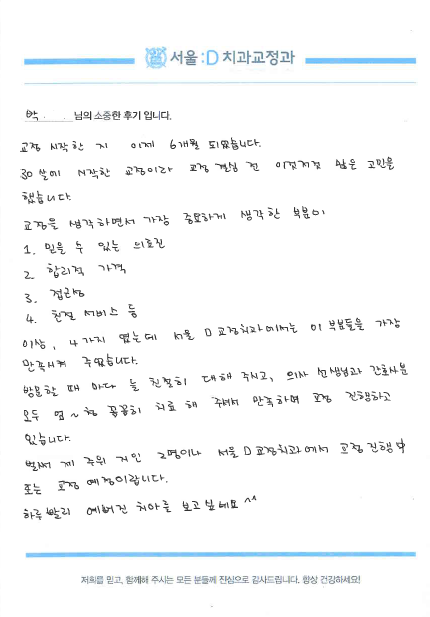 서울:D 치과교정과
박. . . 님의 소중한 후기 입니다.
교정 시작한 지 이제 6개월 되었습니다.
30살에 시작한 교정이라 교정 결심 전 이것저것 많은 고민을
했습니다.
교정을 생각하면서 가장 중요하게 생각한 부분이
1. 믿을 수 있는 의료진
2. 합리적 가격
3. 접근성
4. 친절 서비스 등
이상, 4가지 였는데 서울 D교정치과에서는 이 부분들을 가장
만족시켜 주었습니다.
방문할 때 마다 늘 친절히 대해 주시고, 의사 선생님과 간호사분
모두 엄~청 꼼꼼히 치료 해 주셔서 만족하며 교정 진행하고
있습니다.
벌써 제 주위 지인 2명이나 서울 D교정치과에서 교정 진행 中
또는 교정 예정이랍니다.
하루 빨리 예뻐진 치아를 보고 싶네요 ^^
저희를 믿고, 함께해 주시는 모든 분들께 진심으로 감사드립니다. 항상 건강하세요!